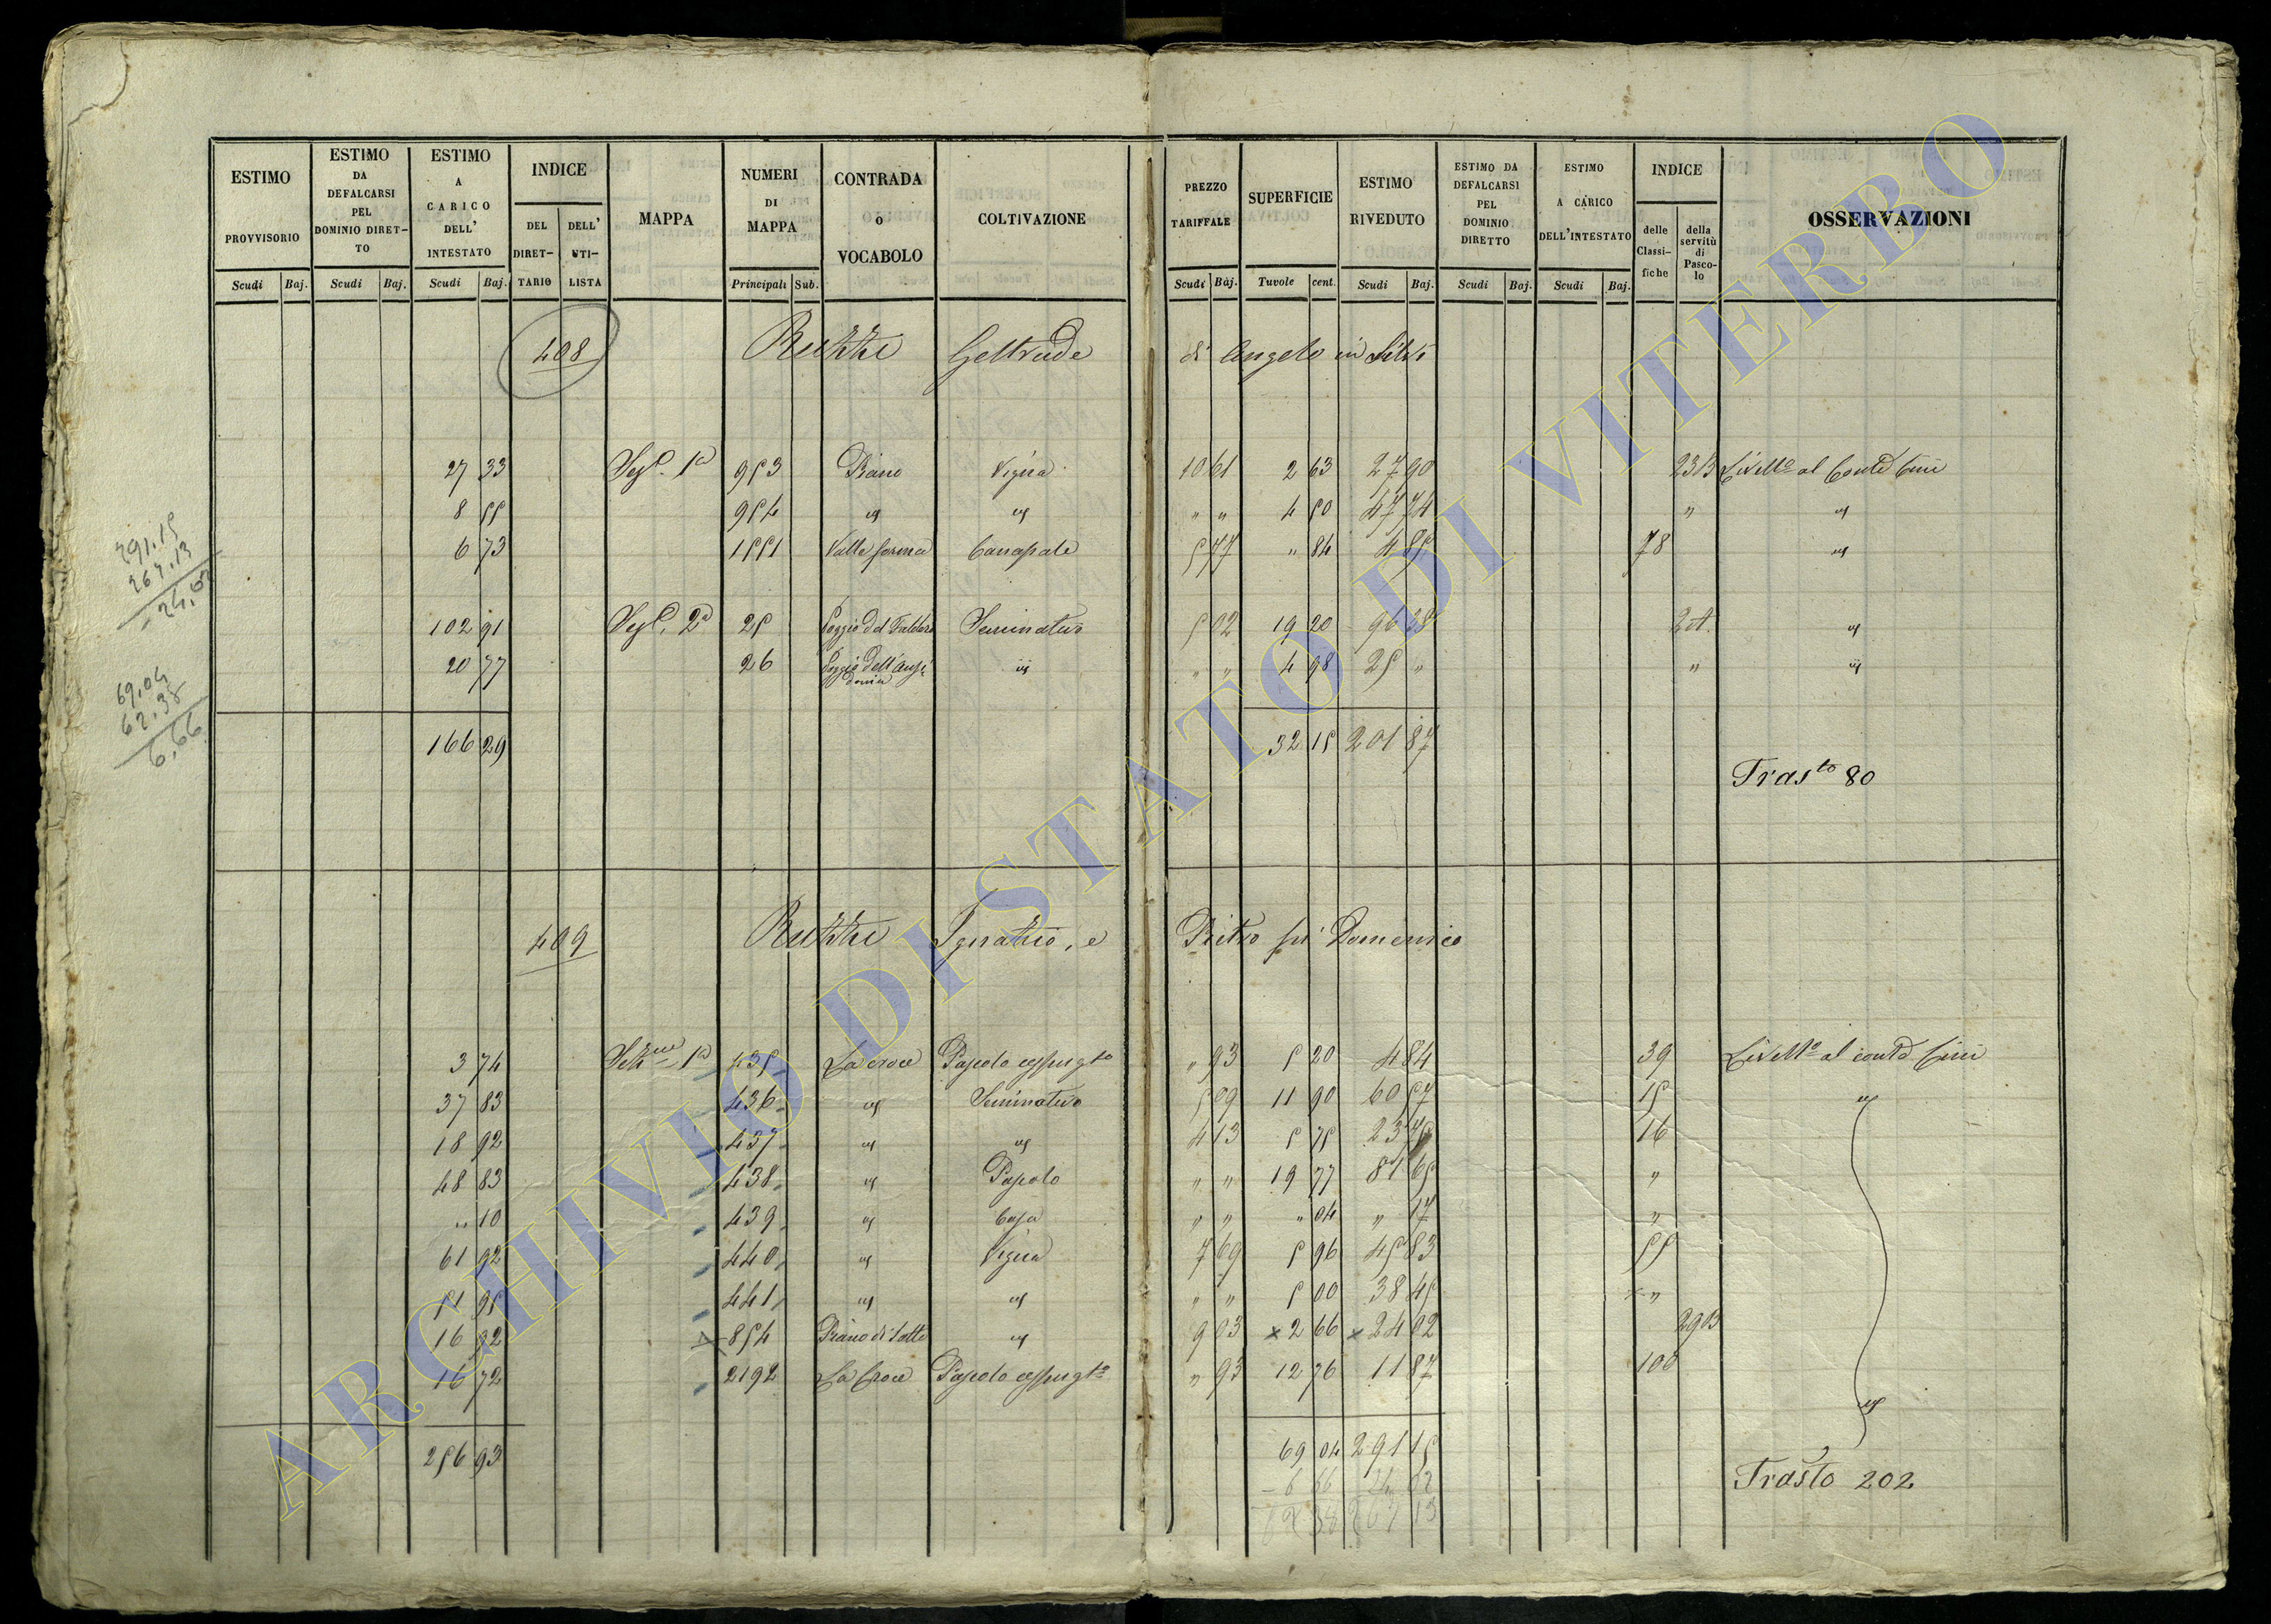 ESTIMO PROVVISORIO | ESTIMO DA DEFALCARSI PEL DOMINIO DIRETTO | ESTIMO A CARICO DELL' INTESTATO | INDICE DEL DIRETTARIO | DELL' UTILISTA | MAPPA | NUMERI DI MAPPA | CONTRADA o VOCABOLO | COLTIVAZIONE | PREZZO TARIFFALE | SUPERFICIE | ESTIMO RIVEDUTO | ESTIMO DA DEFALCARSI PEL DOMINIO DIRETTO | ESTIMO A CARICO DELL'INTESTATO | INDICE delle Classifiche | della servitù di Pascolo | OSSERVAZIONI
Scudi Baj. Scudi Baj. Scudi Baj. Principali Sub. Scudi Baj. Tavole cent. Scudi Baj. Scudi Baj. Scudi Baj.
408 Ruzzi Geltrude di Angelo in
27 33 1a 953 Piano Vigna 10 61 2 63 27 90 23B Livello al Conte Cini
8 55 954 " " " " 4 50 47 74 " "
6 73 1551 Valle forma Canapale 5 77 " 84 4 85 78 "
102 91 2a 25 Poggio del Seminativo 5 02 19 20 96 38 "
20 77 26 Poggio dell' " " " 4 98 25 " " "
166 29 32 15 201 87
Trasto 80
291.15
267.13
24.02
69.04
62.38
6.66
409 Ruzzi Ignazio, e Pietro fu Domenico
3 74 1a 435 La croce Pascolo cespugto " 93 5 20 4 84 39 Livello al conte Cini
37 83 436 " Seminativo 5 09 11 90 60 57 15 "
18 92 437 " " 4 13 5 75 23 75 16
48 83 438 " Pascolo " " 19 77 81 65 "
" 10 439 " Casa " " " 04 " 17 "
61 92 440 " Vigna 7 69 5 96 45 83 55
51 95 441 " " " " 5 00 38 45 "
16 92 854 Piano di Sotto " 9 03 x 2 66 x 24 02 29B
16 72 2192 La Croce Pascolo cespugto " 93 12 76 11 87 100 "
256 93 69 04 291 15
- 6 66 24 02
62 38 267 13
Trasto 202
ARCHIVIO DI STATO DI VITERBO